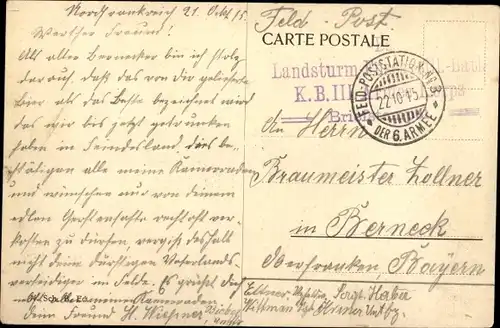 Nordfrankreich 21. Okt. 15.
Werther Freund!
Als alter Bernecker bin ich stolz
darauf, daß das von Dir gelieferte
Bier als das Beste bezeichnet wird
das wir bis jetzt getrunken
haben in Feindesland. Dies be-
stätigen alle meine Kameraden
und wünschen nur von deinem
edlen Gerstensafte recht oft ver-
kosten zu dürfen, vergiß deshalb
nicht deine durstigen Vaterlands-
verteidiger im Felde. Es grüßt Dich
Kameraden
dein Freund H. Wießner
Feld-Post.
CARTE POSTALE
Landsturm
K.B.III
FELD-POSTSTATION NR. 3
22.10.15.
* DER 6. ARMEE *
An Herrn
Braumeister Zollner
in Berneck
Oberfranken, Bayern